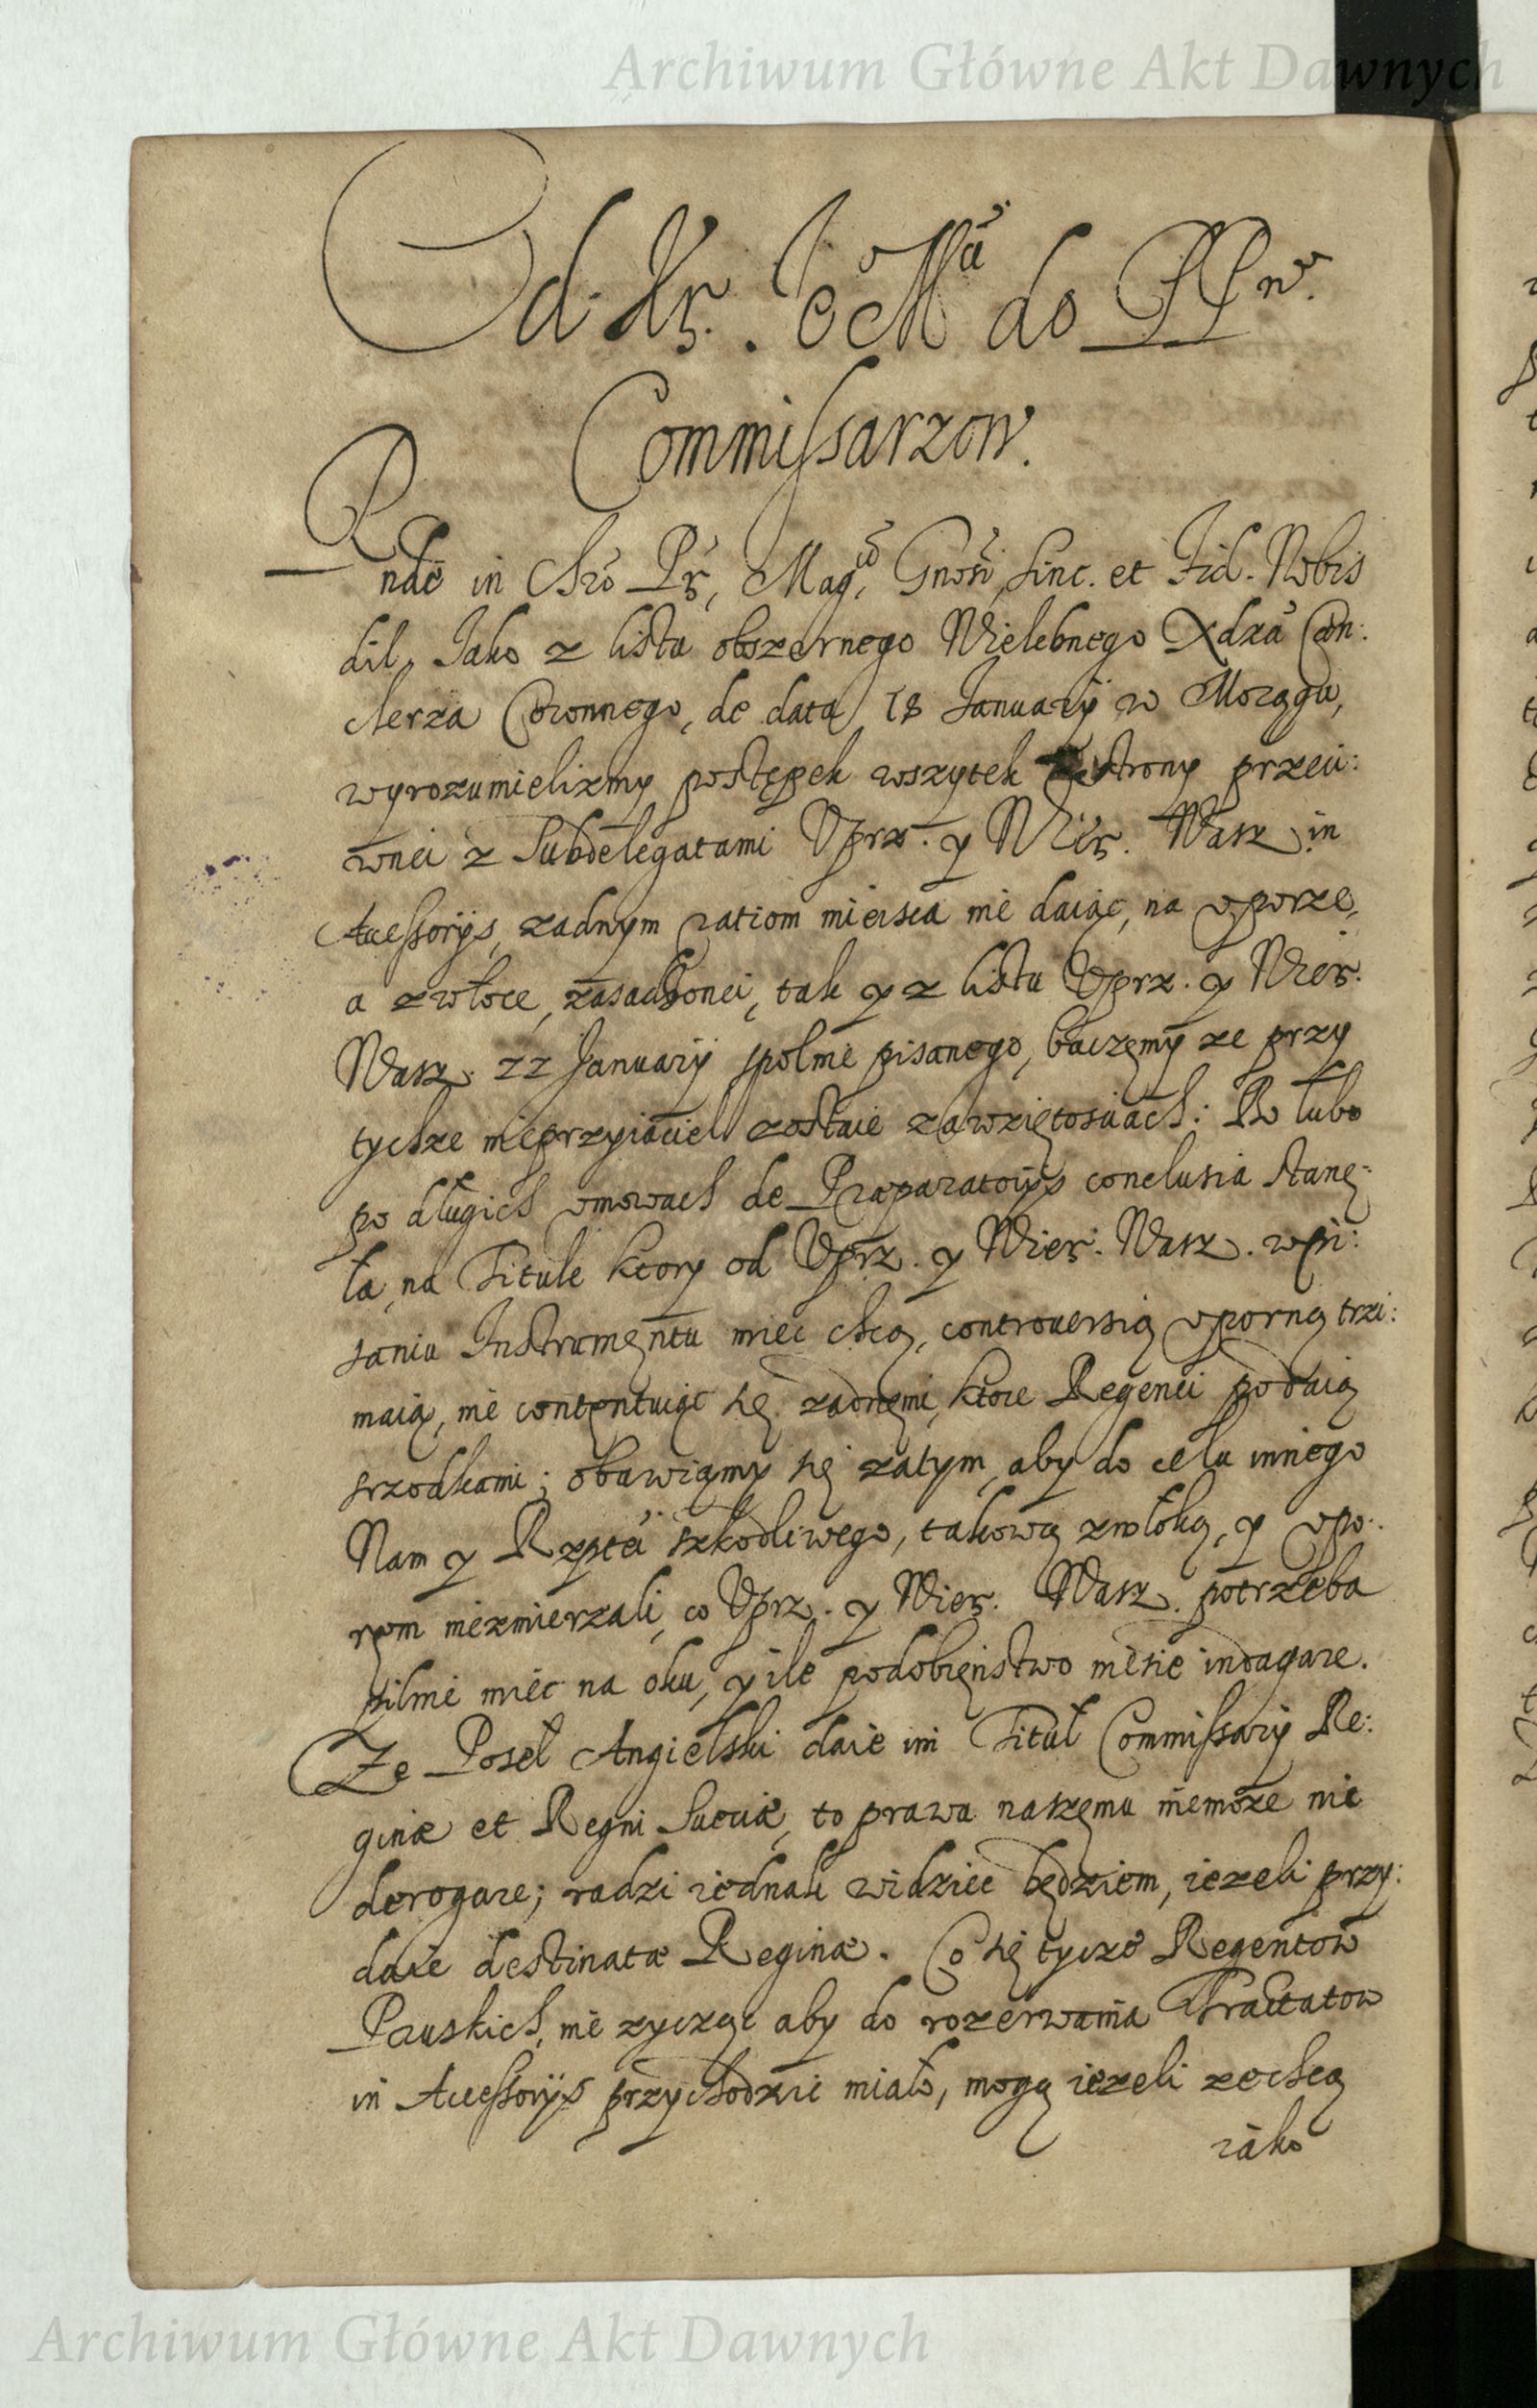 Archiwum Główne Akt Dawnych
Od Kr. Je° Mci do PPnw.
Commissarzow.
Rnde in Chro Pr, Magci, Gnosi, sinc. et Fid. Nobis
dil, Jako z listu obszernego Wielebnego Xdza Can:
clerza Coronnego, de data 18 Januarij w Morągu,
wyrozumielizmy postępek wszytek zestrony przeci:
wnei z Subdelegatami Vprz. y Wier. Wasz. in
Accessorijs, zadnym ratiom mieisca nie daiąc, na vporze,
a zwłoce, zasadzonei, tak y z listu Vprz. y Wier.
Wasz. 22 Januarij spolnie pisanego, baczemy ze przy
tychze nieprzyiaciel zostaie zawziętosciach: Bo lubo
po długich vmowach de Præparatorijs conclusia stanę:
ła, na Titule ktory od Vprz. y Wier. Wasz. w pi:
saniu Instrumentu miec chcą, controuersią vporną trzi:
maią, nie contentuiąc się zadnemi, ktore Regenci podaią
srzodkami; obawiamy się zatym, aby do celu innego
Nam y Rzptei szkodliwego, takową zwłoką, y vpo:
rem niezmierzali, co Vprz. y Wier. Wasz. potrzeba
pilnie miec na oku, y ile podobieństwo niesie indagare.
Ze Poseł Angielski daie im Tituł Commissarij Re:
ginæ et Regni Sueciæ, to prawu naszemu niemoże nic
derogare; radzi iednak widziec będziem, iezeli przy:
daie destinatæ Reginæ. Co się tycze Regentow
Pruskich, nie zycząc aby do rozerwania Tractatow
in Accessorijs przychodzic miało, mogą iezeli zechcą
iako
Archiwum Główne Akt Dawnych